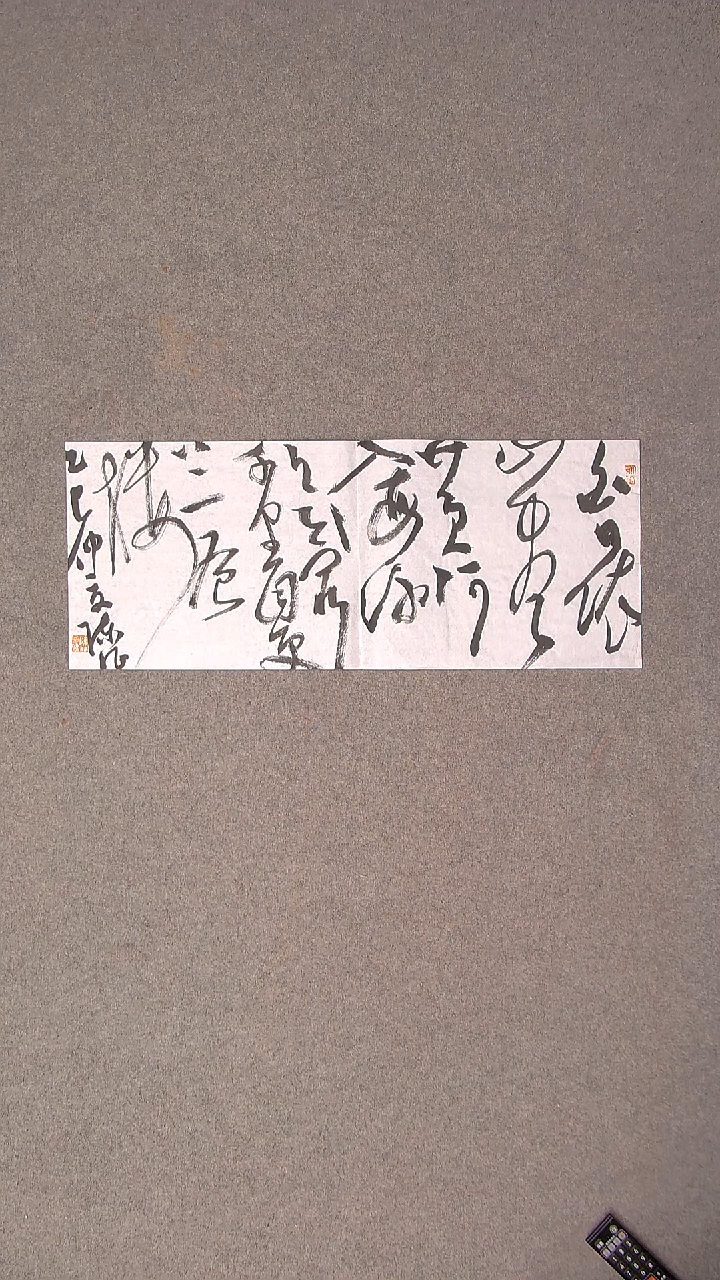 白日依
山尽
黄河
入海流
欲穷
千里目更
上一层
楼
乙巳仲夏